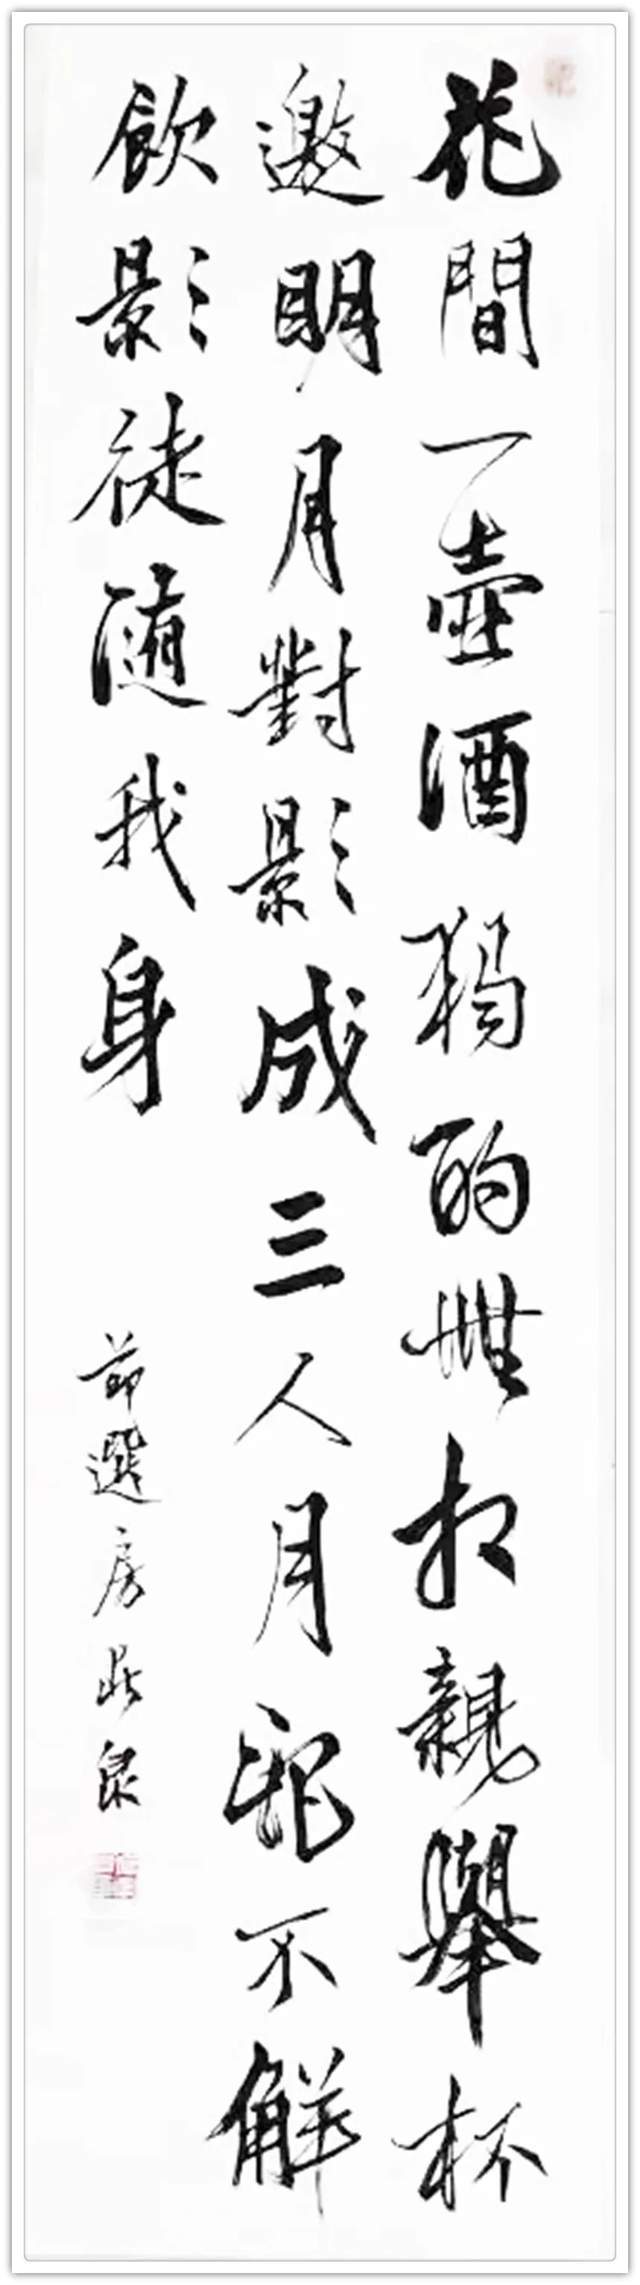 花間一壺酒獨酌無相親舉杯
邀明月對影成三人月既不解
飲影徒随我身
節選房㱔泉